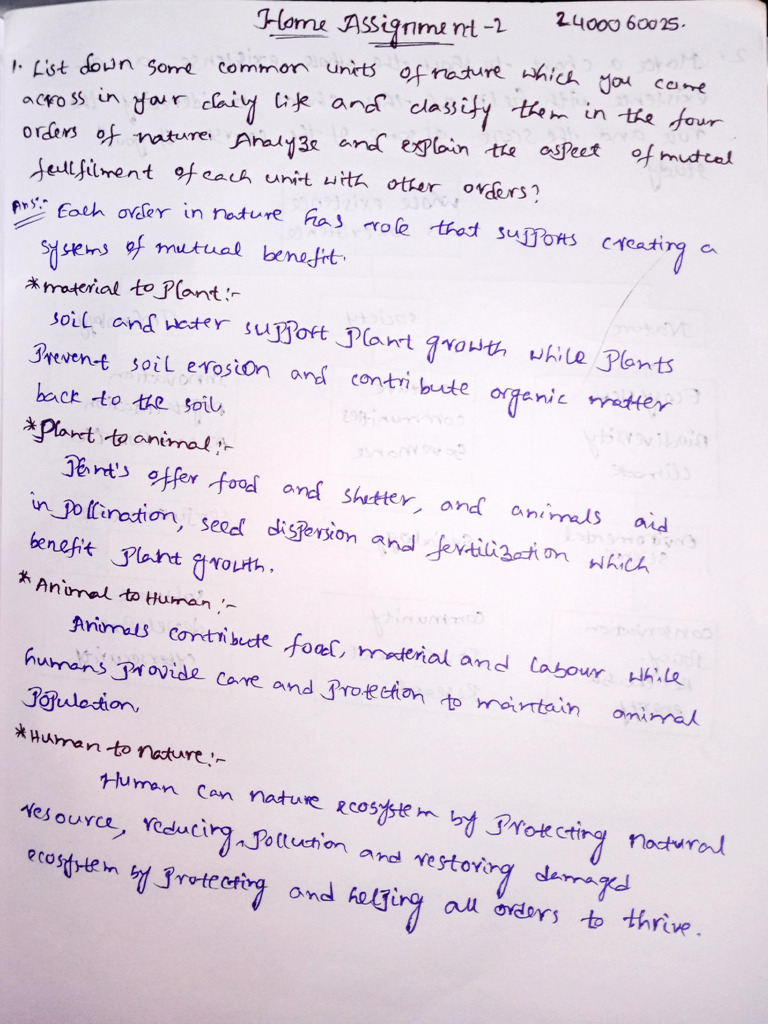 Home Assignment-2 2400060025.
1. List down some common units of nature which you came
across in your daily life and classify them in the four
orders of nature. Analyze and explain the aspect of mutual
fullfilment of each unit with other orders?
Ans:- Each order in nature has role that supports creating a
systems of mutual benefit.
*material to Plant:-
soil and water support Plant growth while Plants
Prevent soil erosion and contribute organic matter
back to the soil.
*Plant to animal:-
Plant's offer food and shetter, and animals aid
in pollination, seed dispersion and fertilization which
benefit Plant growth.
*Animal to Human:-
Animals contribute food, material and labour while
humans provide care and protection to maintain animal
Population.
*Human to nature:-
Human can nature ecosystem by Protecting natural
resource, reducing, pollution and restoring damaged
ecosystem by Protecting and helping all orders to thrive.